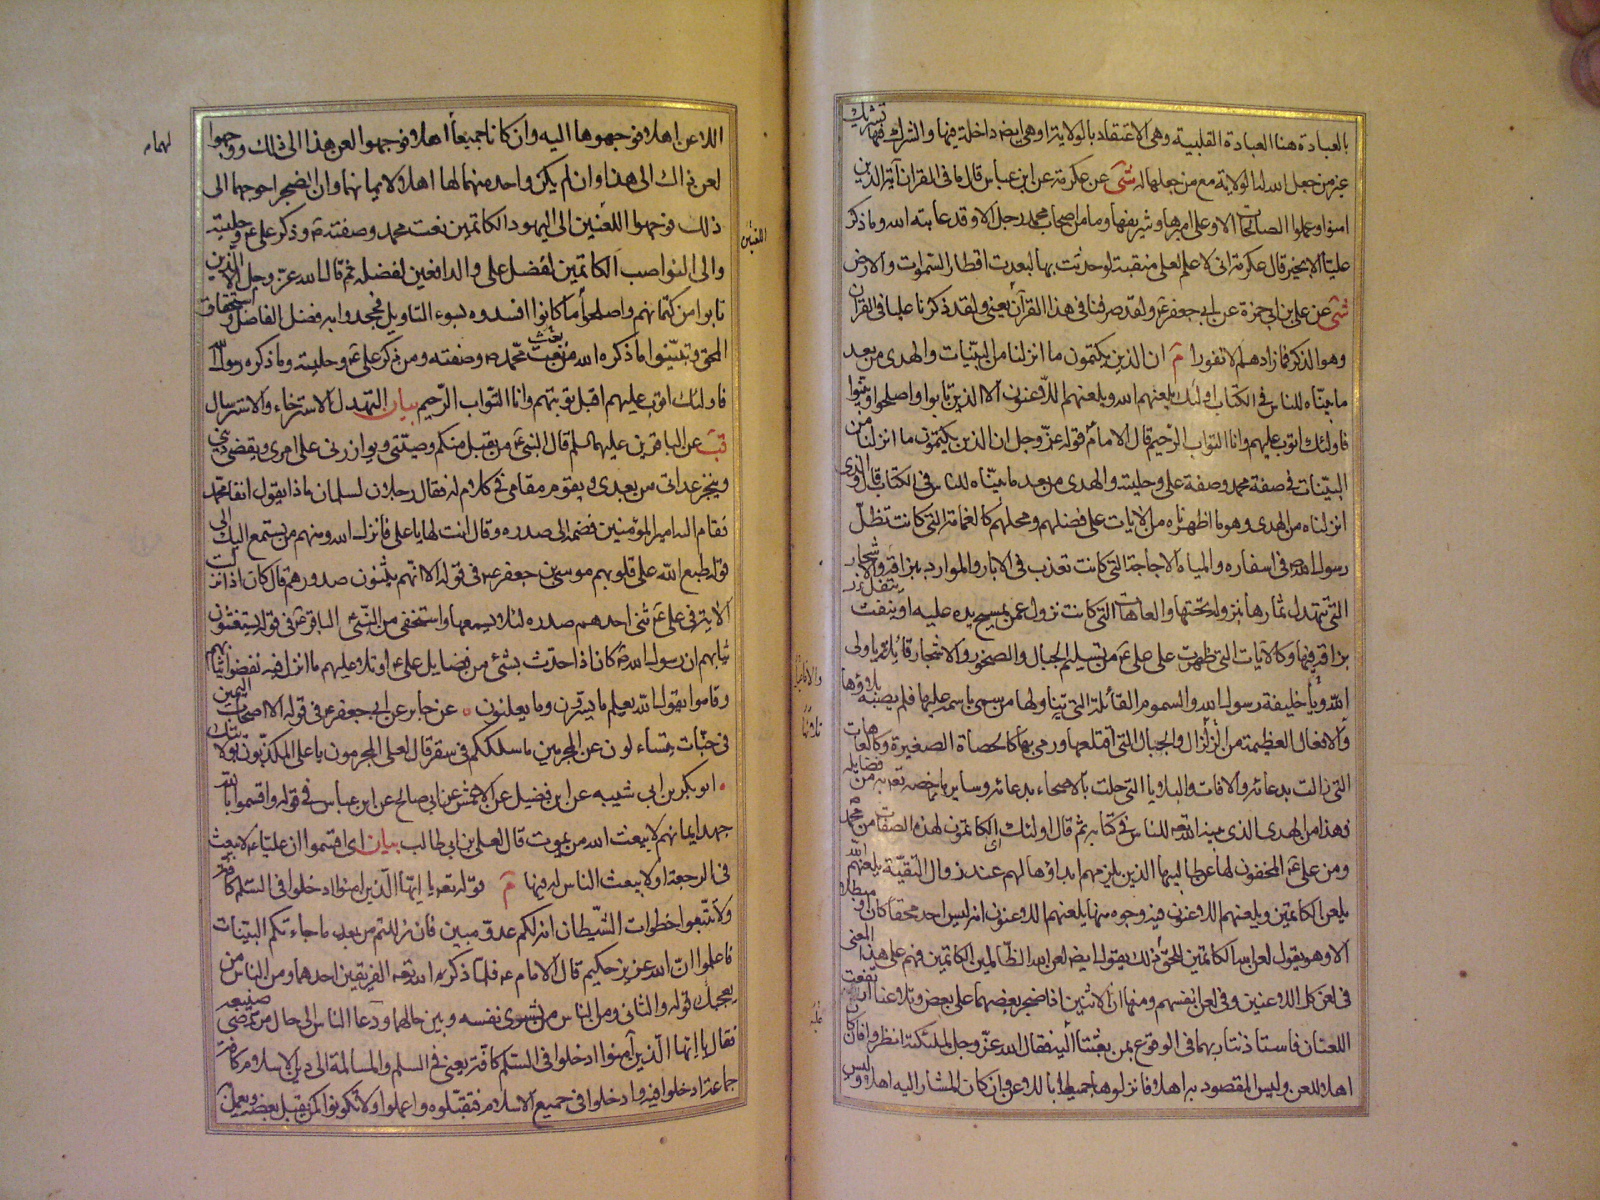 بالعبادة هنا العبادة القلبية وهي الاعتقاد بالولاية او هي ايض داخلة فيها والشرك فيها تشريك
غيره من جعل الله له الولاية مع من جعلها له شى عن عكرمة عن ابن عباس قال ما في القرآن آية الذين
امنوا وعملوا الصالحات الا وعلى اميرها وشريفها وما من اصحاب محمد رجل الا وقد عاتبه الله وما ذكر
عليّا الا بخير قال عكرمة اني لاعلم لعلي منقبة لو حدثت بها لبعدت اقطار السموات والارض
شى عن علي بن ابي حمزة عن ابي جعفر ع ولقد صرفنا في هذا القرآن يعني ولقد ذكرنا عليا في القرآن
وهو الذكر فما زادهم الا نفورا م ان الذين يكتمون ما انزلنا من البيّنات والهدى من بعد
ما بيّناه للناس في الكتاب اولئك يلعنهم الله ويلعنهم اللاعنون الا الذين تابوا واصلحوا وبيّنوا
فاولئك اتوب عليهم وانا التواب الرحيم قال الامام قوله عزّ وجل ان الذين يكتمون ما انزلنا من
البيّنات في صفة محمد وصفة علي وحليته والهدى من بعد ما بيّناه للناس في الكتاب قال والذي
انزلناه من الهدى وهو ما اظهرناه من الايات على فضلهم ومحلهم كالغمامة التي كانت تظلّ
رسول الله في اسفاره والمياه الاجاجة التي كانت تعذب في الابار والموارد ببزاقه والاشجار
التي تتهدل ثمارها بنزوله تحتها والعاهات التي كانت تزول عمن يمسح يده عليه او ينفث
بزاقه فيها وكالآيات التي ظهرت على علي ع من تسليم الجبال والصخور والاشجار قائلة يا ولي
الله ويا خليفة رسول الله والسموم القاتلة التي تناولها من سمى باسمه عليها فلم يصبه بلاؤها
والافعال العظيمة من الزلازل والجبال التي اقتلعها ورمى بها كالحصاة الصغيرة وكالعاهات
التي زالت بدعائه والافات والبلايا التي حلت بالاصحاء بدعائه وساير ما خصه تعالى به من فضايله
فهذا من الهدى الذي بينه الله للناس في كتابه ثم قال اولئك اي الكاتمون لهذه الصفات من محمد
ومن علي ع المخفون لها عن طالبيها الذين يلزمهم ابداؤها لهم عند زوال التقيّة يلعنهم الله
يلعن الكاتمين ويلعنهم اللاعنون فيه وجوه منها يلعنهم اللاعنون انه ليس احد محقا كان او مبطلا
الا وهو يقول لعن الله الكاتمين للحق ذلك يقول ايض لعن الله الظالمين الكاتمين فهم على هذا المعنى
في لعن كل اللاعنين وفي لعن انفسهم ومنها ان الاثنين اذا ضجر بعضهما على بعض وتلاعنا ارتفعت
اللعنتان فاستاذنتا ربهما في الوقوع بمن بعثتا اليه فقال الله عزّ وجل للملئكة انظروا فان كان
اهلا للعن وليس المقصود به اهلا فانزلوهما جميعا باللاعن وان كان المشار اليه اهلا وليس
اللاعن اهلا فوجهوها اليه وان كانا جميعاً اهلا فوجهوا لعن هذا الى ذلك ووجهوا
لعن ذاك الى هذا وان لم يكن واحد منهما لها اهلا لايمانهما وان الضجر احوجهما الى
ذلك فوجهوا اللعنتين الى اليهود الكاتمين نعت محمد وصفته ص وذكر علي ع وحليته
والى النواصب الكاتمين لفضل علي والدافعين لفضله ثم قال الله عزّ وجل الا الذين
تابوا من كتمانهم واصلحوا ما كانوا افسدوه بسوء التاويل فجحدوا به فضل الفاضل واستحقاق
المحق وبيّنوا ما ذكره الله من نعت محمد ص وصفته ومن ذكر علي ع وحليته وما ذكره رسول الله
فاولئك اتوب عليهم اقبل توبتهم وانا التواب الرحيم بيان التهدل الاسترخاء والاسترسال
قب عن الباقرين عليهما السلم قال النبي ع من يقبل منكم وصيتي ويوازرني على امري ويقضي ديني
وينجز عداتي من بعدي ويقوم مقامي في كلام له فقال رجلان لسلمان ماذا يقول انفا محمد
فقام اليه امير المؤمنين فضمه الى صدره وقال انت لها يا علي فانزل الله ومنهم من يستمع اليك الى
قوله طبع الله على قلوبهم موسى بن جعفر ع في قوله الا انهم يثنون صدورهم قال كان اذا انزلت
الاية في علي ع ثنى احدهم صدره لئلا يسمعها واستخفى من النبي ع الباقر ع في قوله يستغشون
ثيابهم ان رسول الله ص كان اذا حدث بشئ من فضايل علي ع او تلا عليهم ما انزل فيه نفضوا ثيابهم
وقاموا يقول الله يعلم ما يسرون وما يعلنون ۰ عن جابر عن ابي جعفر ع في قوله الا اصحاب اليمين
في جنّات يتساءلون عن المجرمين ما سلككم في سقر قال لعلي المجرمون يا علي المكذبون بولايتك
۰ ابو بكر بن ابي شيبه عن ابن فضيل عن الاعمش عن ابي صالح عن ابن عباس في قوله واقسموا بالله
جهد ايمانهم لا يبعث الله من يموت قال لعلي بن ابي طالب بيان اي اقسموا ان عليّا ع لا يبعث
في الرجعة او لا يبعث الناس له فيها م قوله تعالى يا ايّها الذين امنوا ادخلوا في السلم كافّة
ولا تتّبعوا خطوات الشيطان انه لكم عدو مبين فان زللتم من بعد ما جاءتكم البيّنات
فاعلموا انّ الله عزيز حكيم قال الامام ع فلما ذكر الله تعالى الفريقين احدهما ومن الناس من
يعجبك قوله والثاني ومن الناس من يشري نفسه وبين حالهما ودعا الناس الى حال من رضي صنيعه
فقال يا ايّها الذين آمنوا ادخلوا في السلم كافّة يعني في السلم والمسالمة الى دين الاسلام كافة
جماعة ادخلوا فيه وادخلوا في جميع الاسلام فتقبّلوه واعملوا ولا تكونوا كمن يقبل بعضه ويعمل
اللعنتين